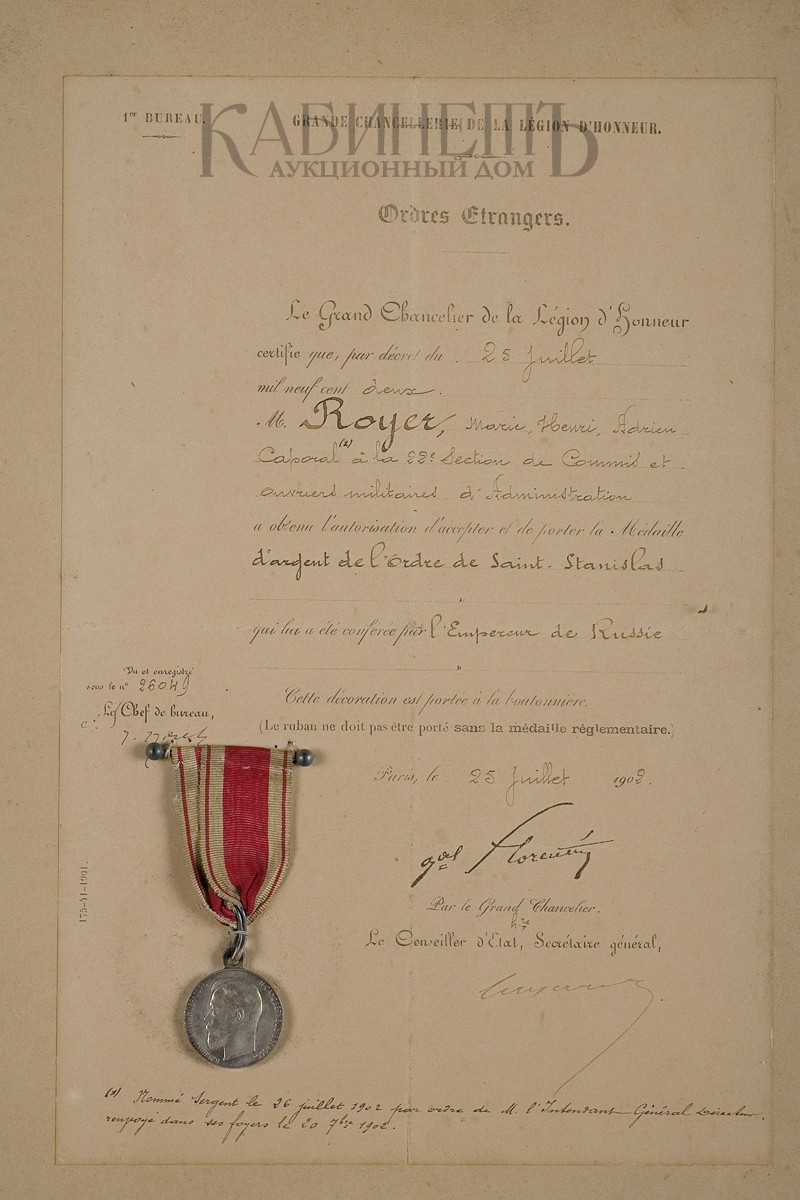 КАБИНЕТЪ
АУКЦИОННЫЙ ДОМ
1er BUREAU.
GRANDE CHANCELLERIE DE LA LÉGION D'HONNEUR.
Ordres Etrangers.
Le Grand Chancelier de la Légion d'Honneur
certifie que, par décret du 25 Juillet
mil neuf cent deux.
M. Royer, Marie, Henri, Adrien
Caporal (a) à la 22e Section de Commis et
ouvriers militaires d'Administration
a obtenu l'autorisation d'accepter et de porter la Médaille
d'argent de l'Ordre de Saint-Stanislas
qui lui a été conférée par l'Empereur de Russie
Vu et enregistré
sous le no 26049
Le Chef de bureau,
Cette décoration est portée à la boutonnière.
(Le ruban ne doit pas être porté sans la médaille réglementaire.)
Paris, le 25 Juillet 1902.
gal Florentin
Par le Grand Chancelier.
Le Conseiller d'Etat, Secrétaire général,
175-41-1901.
(a) Nommé Sergent le 26 juillet 1902 par ordre de M. l'Intendant Général Directeur
renvoyé dans ses foyers le 20 7bre 1902.